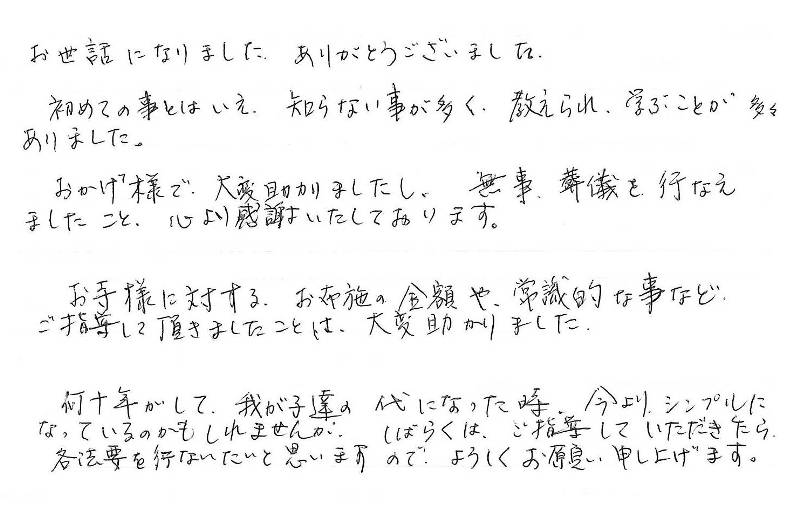 お世話になりました。ありがとうございました。
初めての事とはいえ、知らない事が多く、教えられ、学ぶことが多々
ありました。
おかげ様で、大変助かりましたし、無事、葬儀を行なえ
ましたこと、心より感謝いたしております。
お寺様に対する、お布施の金額や、常識的な事など、
ご指導して頂きましたことは、大変助かりました。
何十年かして、我が子達の代になった時、今より、シンプルに
なっているのかもしれませんが、しばらくは、ご指導していただきたら、
各法要を行ないたいと思いますので、よろしくお願い申し上げます。